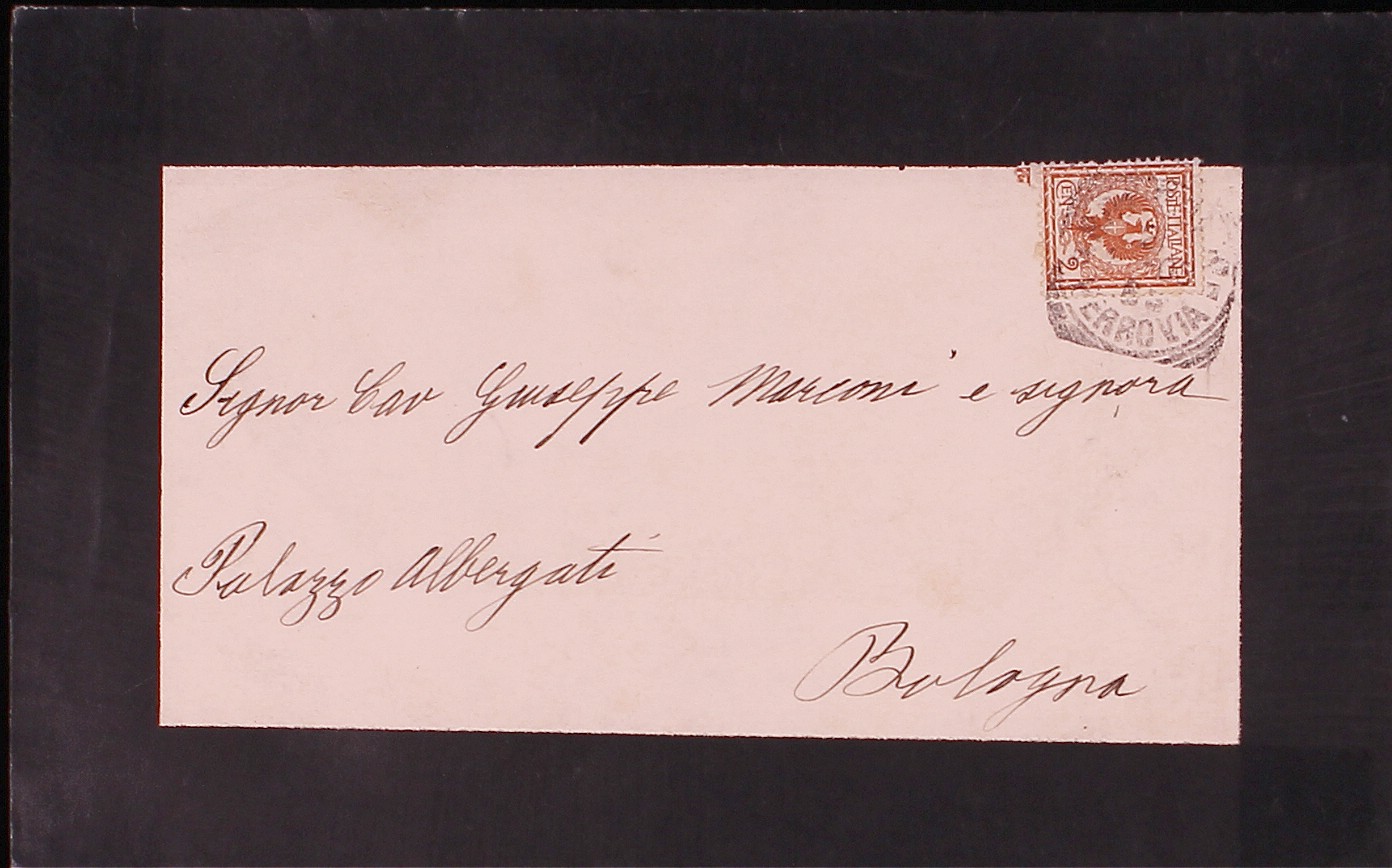 POSTE-ITALIANE
CEN. 2
FERROVIA
Signor Cav Giuseppe Marconi e signora
Palazzo Albergati
Bologna